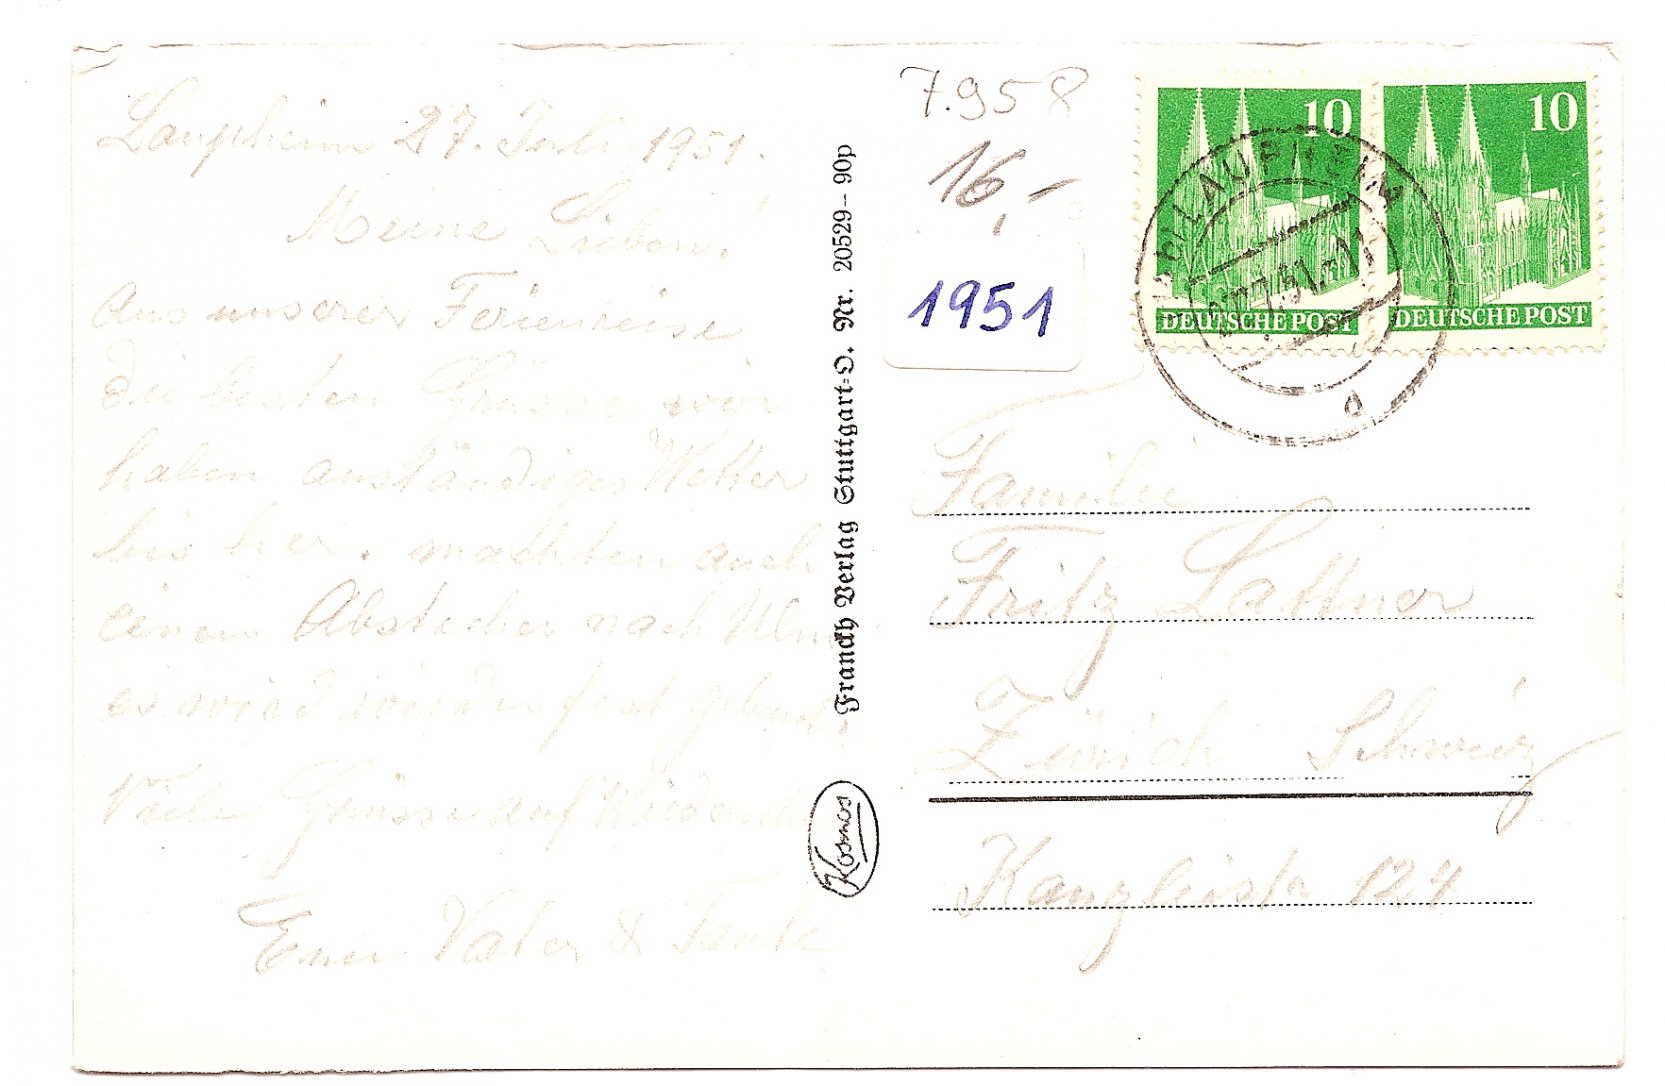 Laupheim 27. Juli 1951.
Meine Lieben!
Aus unserer Ferienreise
die besten Grüsse wir
haben anständiges Wetter
bis hier. machten auch
einen Abstecher nach Ulm
es wird wieder fest gebaut.
Viele Grüsse auf Wiedersehen
Euer Vater & Tante
Franckh Verlag Stuttgart=O. Nr. 20529– 90p
Kosmos
7.958
16,-
1951
10
DEUTSCHE POST
10
DEUTSCHE POST
LAUPHEIM
.7.51.-11
d
Familie
Fritz Lattner
Zürich Schweiz
Kanzleistr 127